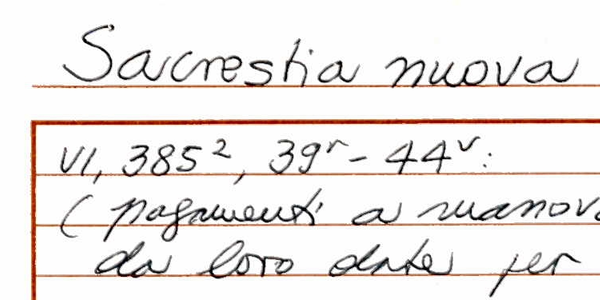 Sacrestia nuova
VI, 385², 39ʳ - 44ᵛ:
( pagamenti a manov
da loro date per